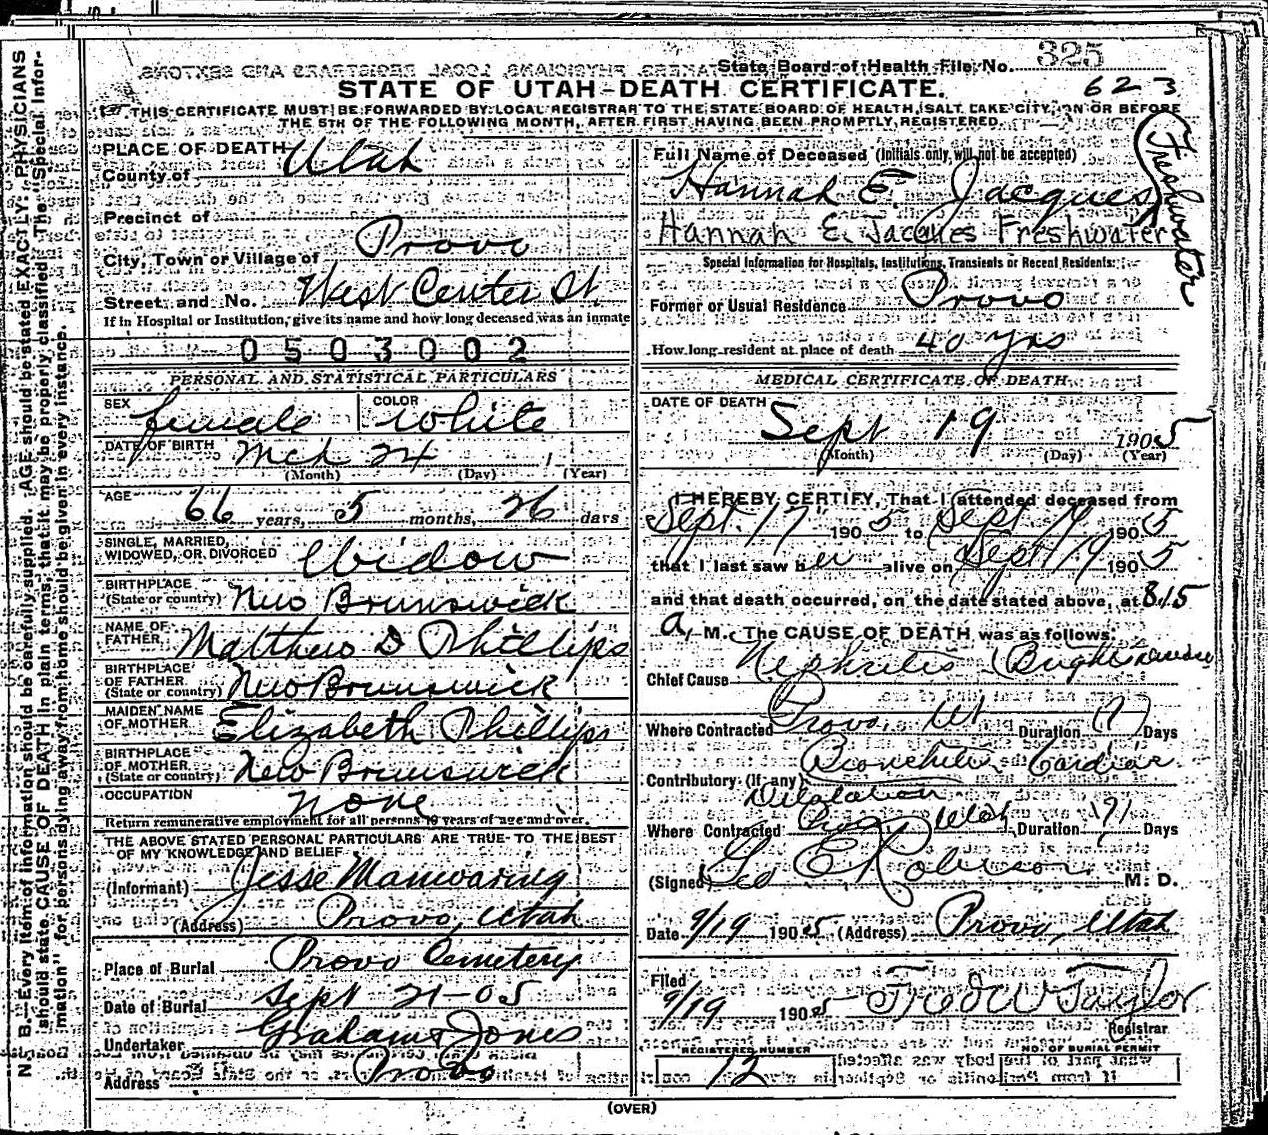 N. B.—Every item of information should be carefully supplied. AGE should be stated EXACTLY. PHYSICIANS
should state CAUSE OF DEATH in plain terms, that it may be properly classified. The "Special Infor-
mation" for persons dying away from home should be given in every instance.
State Board of Health File No. 325
623
STATE OF UTAH—DEATH CERTIFICATE.
THIS CERTIFICATE MUST BE FORWARDED BY LOCAL REGISTRAR TO THE STATE BOARD OF HEALTH, SALT LAKE CITY, ON OR BEFORE
THE 5TH OF THE FOLLOWING MONTH, AFTER FIRST HAVING BEEN PROMPTLY REGISTERED.
PLACE OF DEATH
County of Utah
Precinct of
City, Town or Village of Provo
Street and No. West Center St
If in Hospital or Institution, give its name and how long deceased was an inmate
0503002
PERSONAL AND STATISTICAL PARTICULARS
SEX female COLOR White
DATE OF BIRTH Mch 24
(Month) (Day) (Year)
AGE 66 years, 5 months, 26 days
SINGLE, MARRIED,
WIDOWED, OR DIVORCED Widow
BIRTHPLACE
(State or country) New Brunswick
NAME OF
FATHER Matthew D Phillips
BIRTHPLACE
OF FATHER
(State or country) New Brunswick
MAIDEN NAME
OF MOTHER Elizabeth Phillips
BIRTHPLACE
OF MOTHER
(State or country) New Brunswick
OCCUPATION none
Return remunerative employment for all persons 10 years of age and over.
THE ABOVE STATED PERSONAL PARTICULARS ARE TRUE TO THE BEST
OF MY KNOWLEDGE AND BELIEF
(Informant) Jesse Manwaring
(Address) Provo, Utah
Place of Burial Provo Cemetery
Date of Burial Sept 21-05
Undertaker Graham & Jones
Address Provo
Full Name of Deceased (Initials only will not be accepted)
Hannah E. Jacques
Freshwater
Hannah E. Jacques Freshwater
Special Information for Hospitals, Institutions, Transients or Recent Residents:
Former or Usual Residence Provo
How long resident at place of death 40 yrs
MEDICAL CERTIFICATE OF DEATH
DATE OF DEATH
Sept 19 1905
(Month) (Day) (Year)
I HEREBY CERTIFY, That I attended deceased from
Sept. 17" 1905 to Sept 19 1905
that I last saw her alive on Sept 19 1905
and that death occurred, on the date stated above, at 8.15
a, M. The CAUSE OF DEATH was as follows:
Chief Cause Nephritis (Brights disease
Where Contracted Provo, Ut Duration (?) Days
Contributory (If any) Bronchitis Cardiac
Dilatation
Where Contracted Provo Utah Duration (?) Days
(Signed) Geo E Robison M. D.
Date 9/19 1905 (Address) Provo, Utah
Filed
9/19 1905 Fred W Taylor
Registrar
REGISTERED NUMBER NO. OF BURIAL PERMIT
72
(OVER)